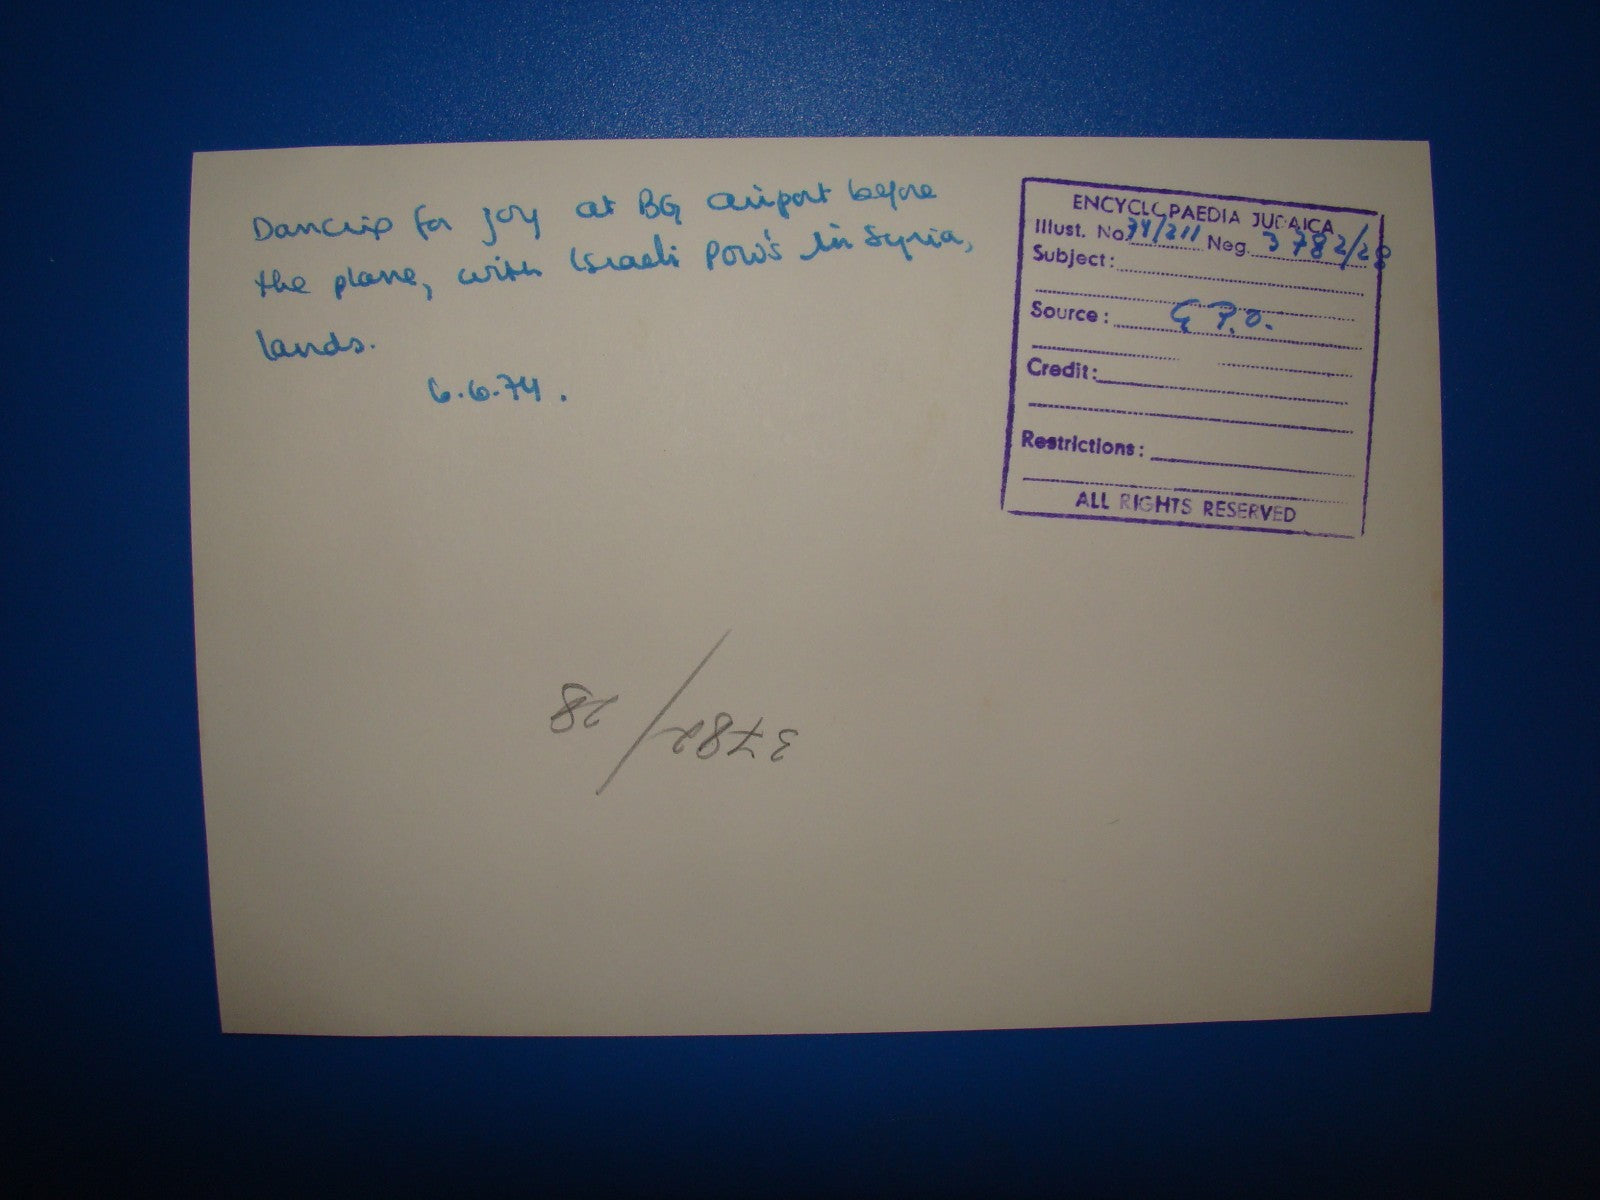 Dancing for joy at BG airport before
the plane, with Israeli POW's in Syria,
lands.
6.6.74.
ENCYCLOPAEDIA JUDAICA
Illust. No. 74/211 Neg. 3782/28
Subject:
Source: G.P.O.
Credit:
Restrictions:
ALL RIGHTS RESERVED
3782/28